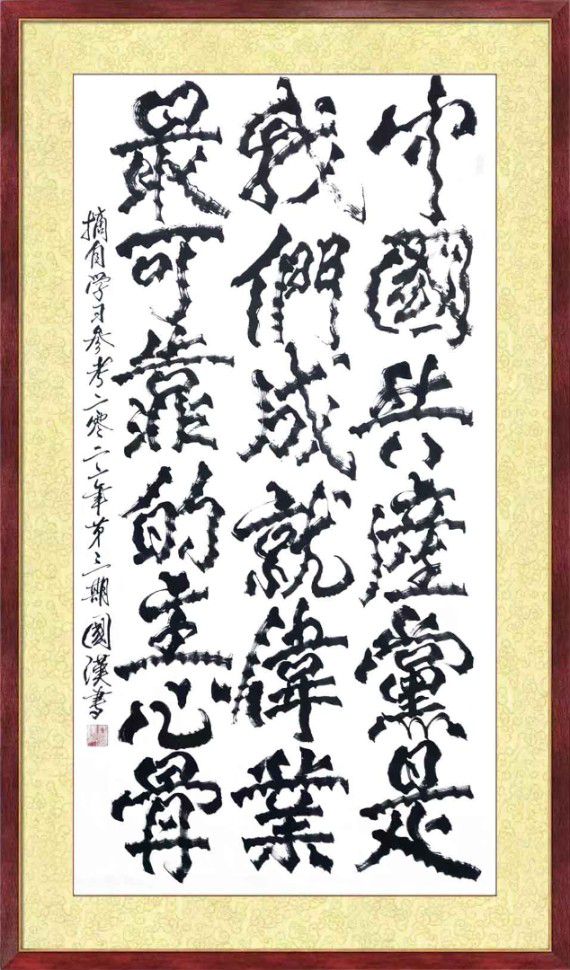 中國共產黨是
我們成就偉業
最可靠的主心骨
摘自学习参考二零二二年第三期國漢書